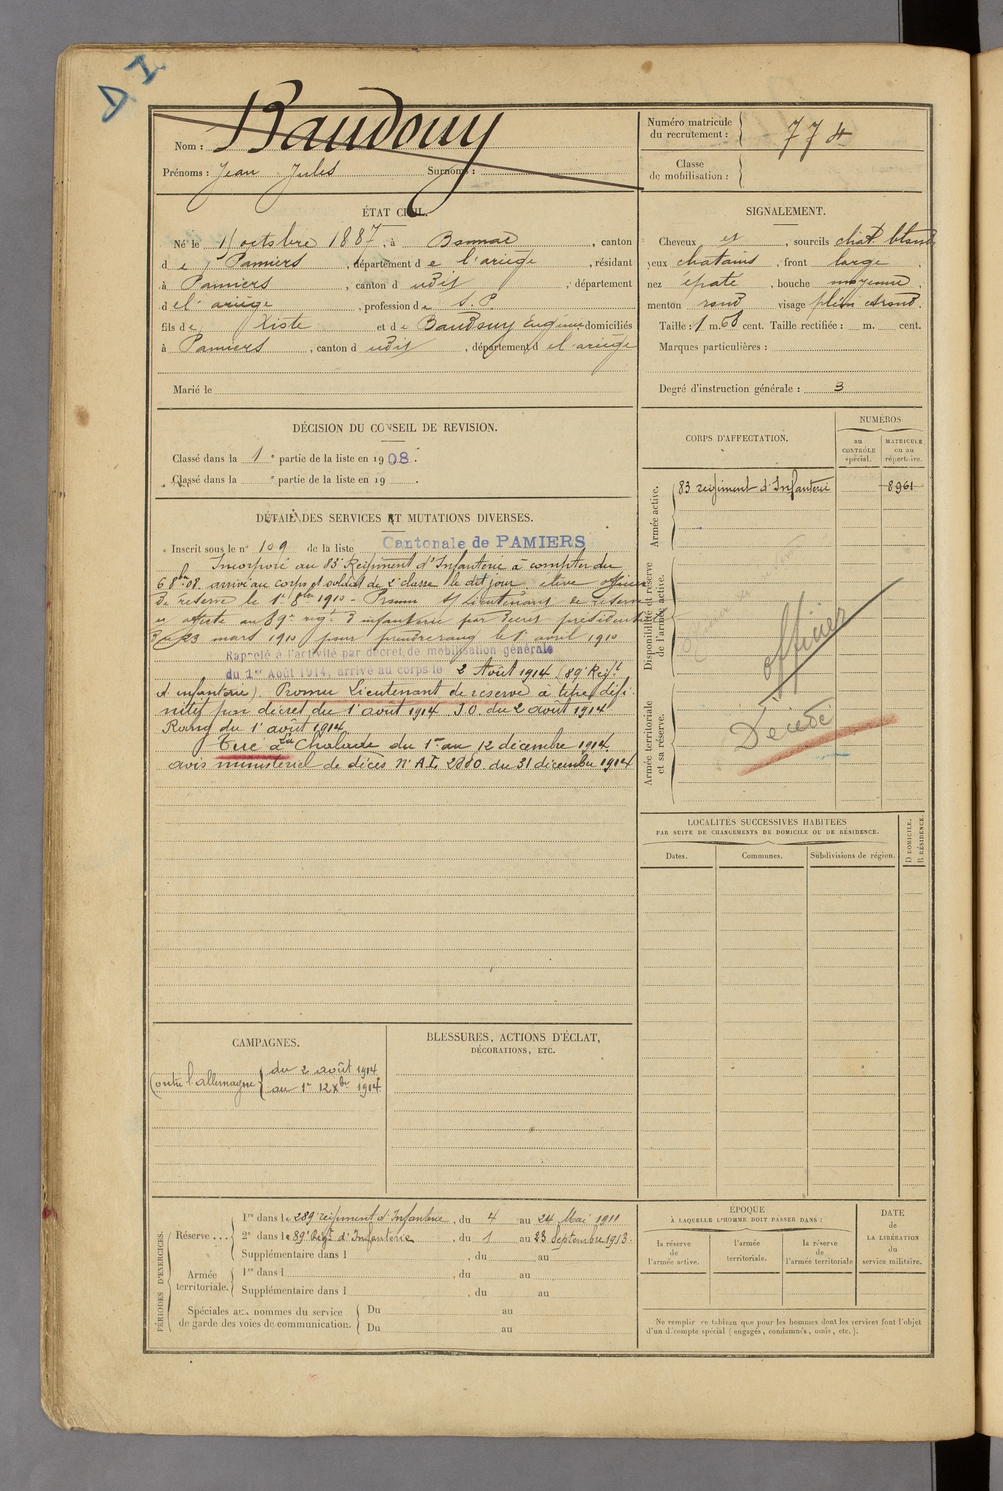 D I
Nom : Baudouy
Prénoms : Jean Jules Surnoms :
Numéro matricule du recrutement : 774
Classe de mobilisation :
ÉTAT CIVIL.
Né le 1 octobre 1887, à Bonnac, canton
de Pamiers, département de l'ariège, résidant
à Pamiers, canton d udit, département
del'ariège, profession de S. P.
fils de Xiste et de Baudouy Eugénie domiciliés
à Pamiers, canton d udit, département d el'ariège
Marié le
SIGNALEMENT.
Cheveux et, sourcils chat. blond
yeux chatains, front large,
nez épaté, bouche moyenne,
menton rond visage plein et rond.
Taille : 1 m. 68 cent. Taille rectifiée : m. cent.
Marques particulières :
Degré d'instruction générale : 3
DÉCISION DU CONSEIL DE REVISION.
Classé dans la 1e partie de la liste en 1908.
Classé dans la e partie de la liste en 19 .
DÉTAIL DES SERVICES ET MUTATIONS DIVERSES.
Inscrit sous le n° 109 de la liste Cantonale de PAMIERS
Incorporé au 83e Régiment d'Infanterie à compter du
6 8bre 08. arrivé au corps et soldat de 2e classe le dit jour, élève officier
de réserve le 1er 8bre 1910 - Promu s/ lieutenant de réserve
et affecté au 89e rég. d'infanterie par décret présidentiel
du 23 mars 1910 pour prendre rang le 1er avril 1910
Rappelé à l'activité par décret de mobilisation générale
du 1er Août 1914, arrivé au corps le 2 Août 1914 (89e Régt
d'infanterie). Promu Lieutenant de réserve à titre défi-
nitif par décret du 1er août 1914 J.O. du 2 août 1914
Rang du 1er août 1914
Tué à La Chalade du 1er au 12 décembre 1914
avis ministériel de décès N° A.I. du 31 décembre 1914
CORPS D'AFFECTATION.
NUMÉROS
au CONTRÔLE spécial.
MATRICULE ou au répertoire.
Armée active.
83 régiment d'Infanterie 8961
Disponibilité et réserve de l'armée active.
officier
Armée territoriale et sa réserve.
Décédé
LOCALITÉS SUCCESSIVES HABITÉES
PAR SUITE DE CHANGEMENTS DE DOMICILE OU DE RÉSIDENCE.
D DOMICILE.
R RÉSIDENCE.
Dates. Communes. Subdivisions de région.
CAMPAGNES.
Contre l'allemagne du 2 août 1914
au 1er 12 Xbre 1914
BLESSURES, ACTIONS D'ÉCLAT,
DÉCORATIONS, ETC.
PÉRIODES D'EXERCICES.
Réserve...
1re dans le 289e régiment d'Infanterie, du 4 au 24 Mai 1911
2e dans le 89e Régt d'Infanterie, du 1 au 23 Septembre 1913.
Supplémentaire dans l , du au
Armée territoriale.
1re dans l , du au
Supplémentaire dans l , du au
Spéciales aux hommes du service
de garde des voies de communication.
Du au
Du au
ÉPOQUE
À LAQUELLE L'HOMME DOIT PASSER DANS :
la réserve de l'armée active.
l'armée territoriale.
la réserve de l'armée territoriale
DATE
de
LA LIBÉRATION
du
service militaire.
Ne remplir ce tableau que pour les hommes dont les services font l'objet
d'un décompte spécial (engagés, condamnés, omis, etc.).